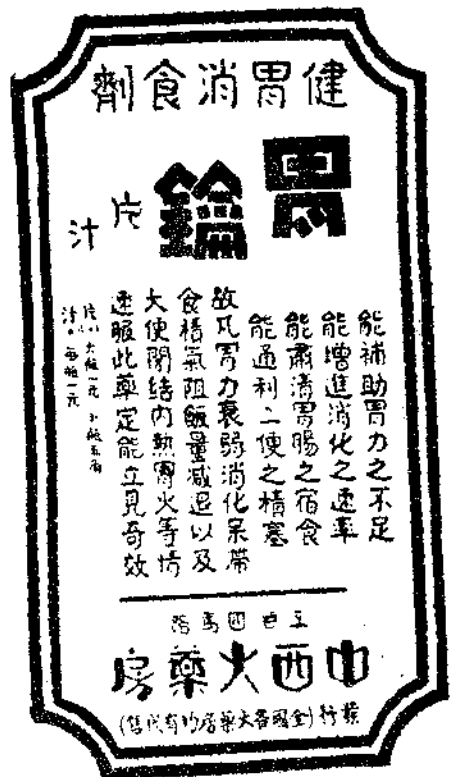 健胃消食劑
胃鑰
片
汁
能補助胃力之不足
能增進消化之速率
能肅清胃腸之宿食
能通利二便之積塞
故凡胃力衰弱消化呆滯
食積氣阻飯量減退以及
大便閉結內熱胃火等情
速服此藥定能立見奇效
片 大瓶一元 小瓶五角
汁 每瓶一元
四馬路
中西大藥房
發行(全國各大藥房均有代售)